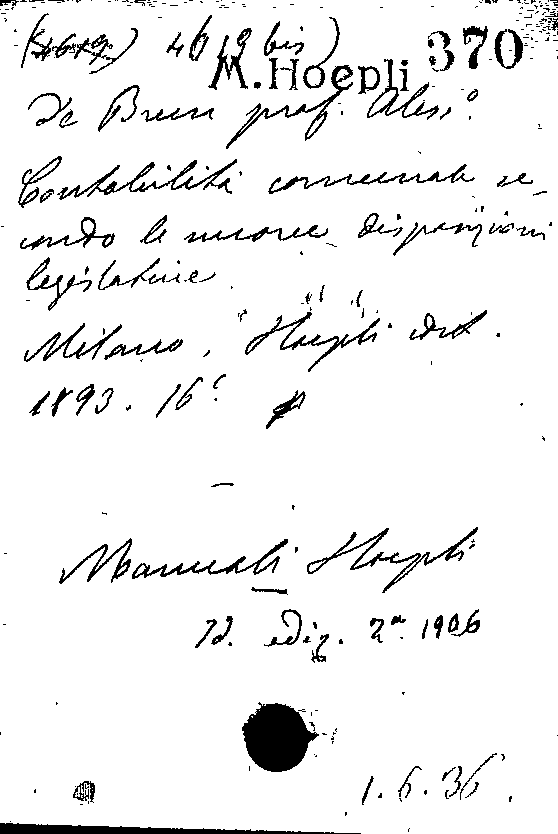 (4619) 4619 bis) 370
M. Hoepli
De Brun prof. Aless.º
Contabilità comunale se-
condo le nuove disposizioni
legislative
Milano, Hoepli edit.
1893. 16º
Manuali Hoepli
Id. ediz. 2ª 1906
1.6.36.